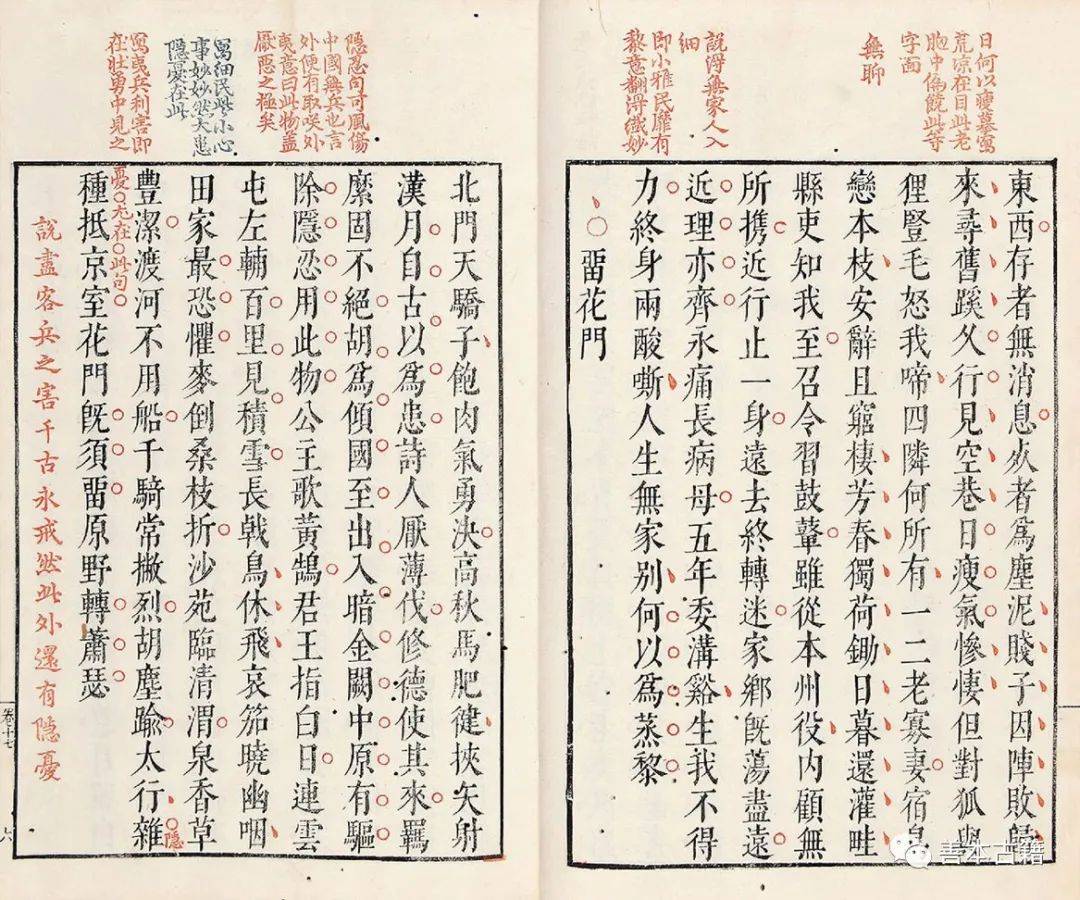 日何以瘦摹寫
荒凉在目此老
胸中偏饒此等
字面
無聊
說得無家人入
細
即小雅民靡有
黎意翻得纖妙
東西存者無消息死者為塵泥賤子因陣敗歸
來尋舊蹊久行見空巷日瘦氣慘悽但對狐與
狸豎毛怒我啼四隣何所有一二老寡妻宿鳥
戀本枝安辭且窮棲芳春獨荷鋤日暮還灌畦
縣吏知我至召令習鼓鼙雖從本州役內顧無
所携近行止一身遠去終轉迷家鄉旣蕩盡遠
近理亦齊永痛長病母五年委溝谿生我不得
力終身兩酸嘶人生無家別何以為蒸黎
畱花門
隱忍句可風傷
中國無兵也言
外便有取咲外
夷意曰此物蓋
厭惡之極矣
寫細民些小心
事妙妙然大患
隱憂在此
寫夷兵利害即
在壯勇中見之
北門天驕子飽肉氣勇決高秋馬肥健挾矢射
漢月自古以為患詩人厭薄伐修德使其來羈
縻固不絕胡為傾國至出入暗金闕中原有驅
除隱忍用此物公主歌黃鵠君王指白日連雲
屯左輔百里見積雪長戟鳥休飛哀笳曉幽咽
田家最恐懼麥倒桑枝折沙苑臨清渭泉香草
豐潔渡河不用船千騎常撇烈胡塵踰太行雜
種抵京室花門旣須畱原野轉蕭瑟
隱
憂尤在此句
說盡客兵之害千古永戒然此外還有隱憂
卷十七
六
善本古籍